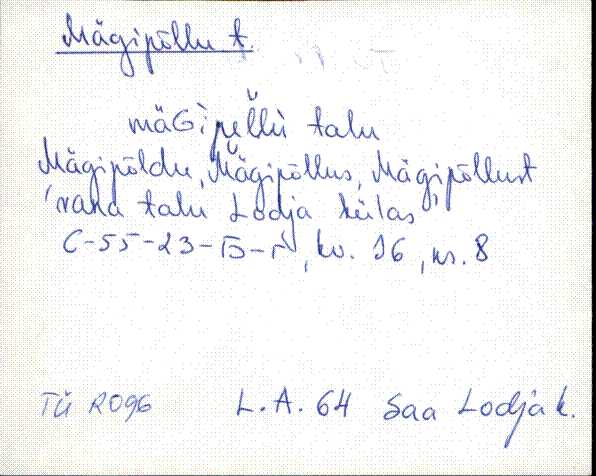 Mägipõllu t.
mäGipe̮l̆lù talu
Mägipõldu, Mägipõllus, Mägipõllust
'vana talu Lodja külas'
C-55-23-Б-г, kv. 16, nr. 8
TÜ R096 L.A. 64 Saa Lodja k.